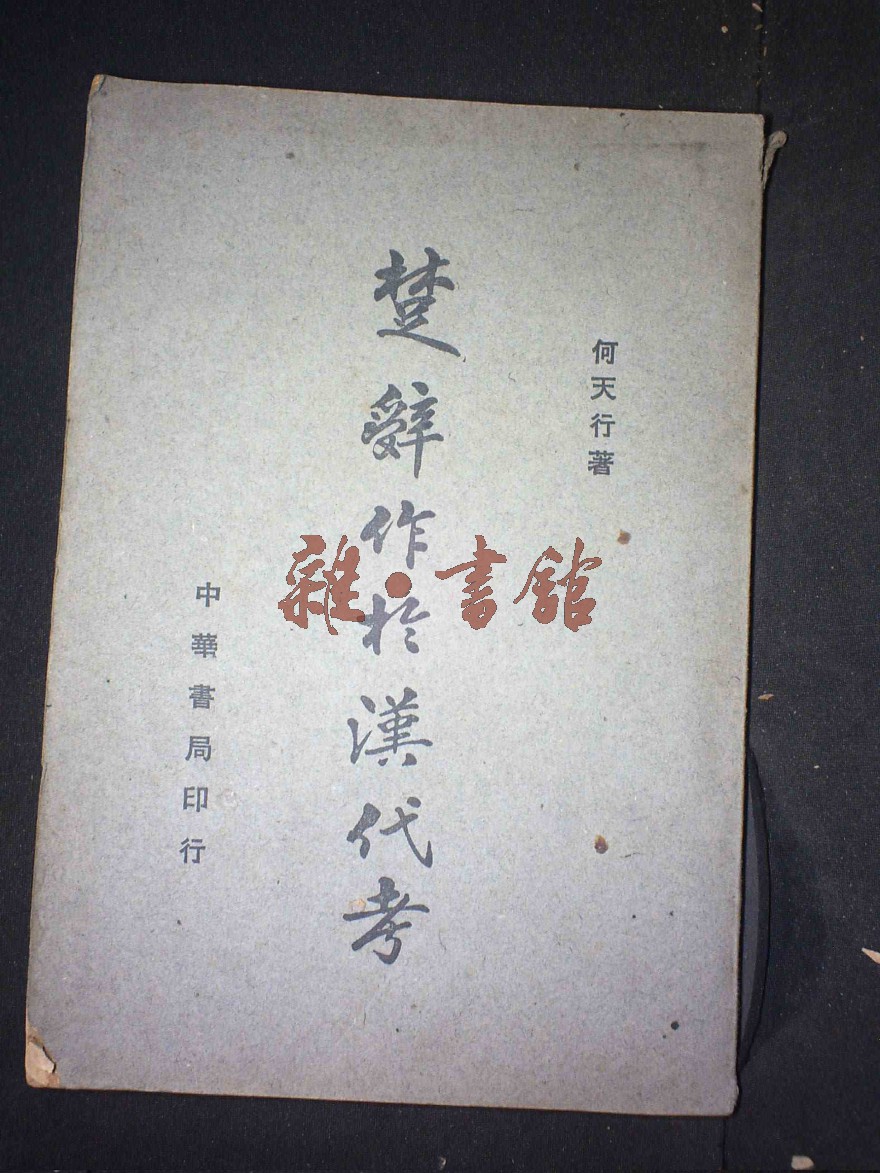 何天行著
楚辭作於漢代考
中華書局印行
雜·書館